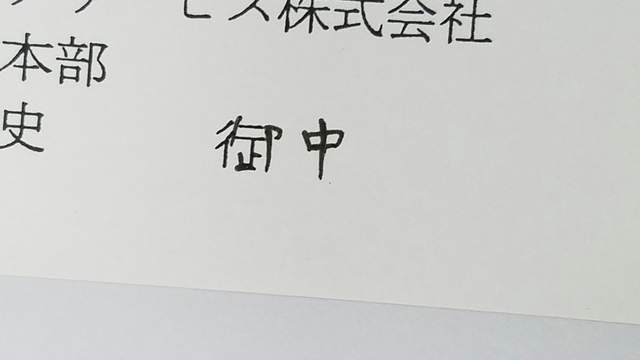 ービス株式会社
本部
史 御中